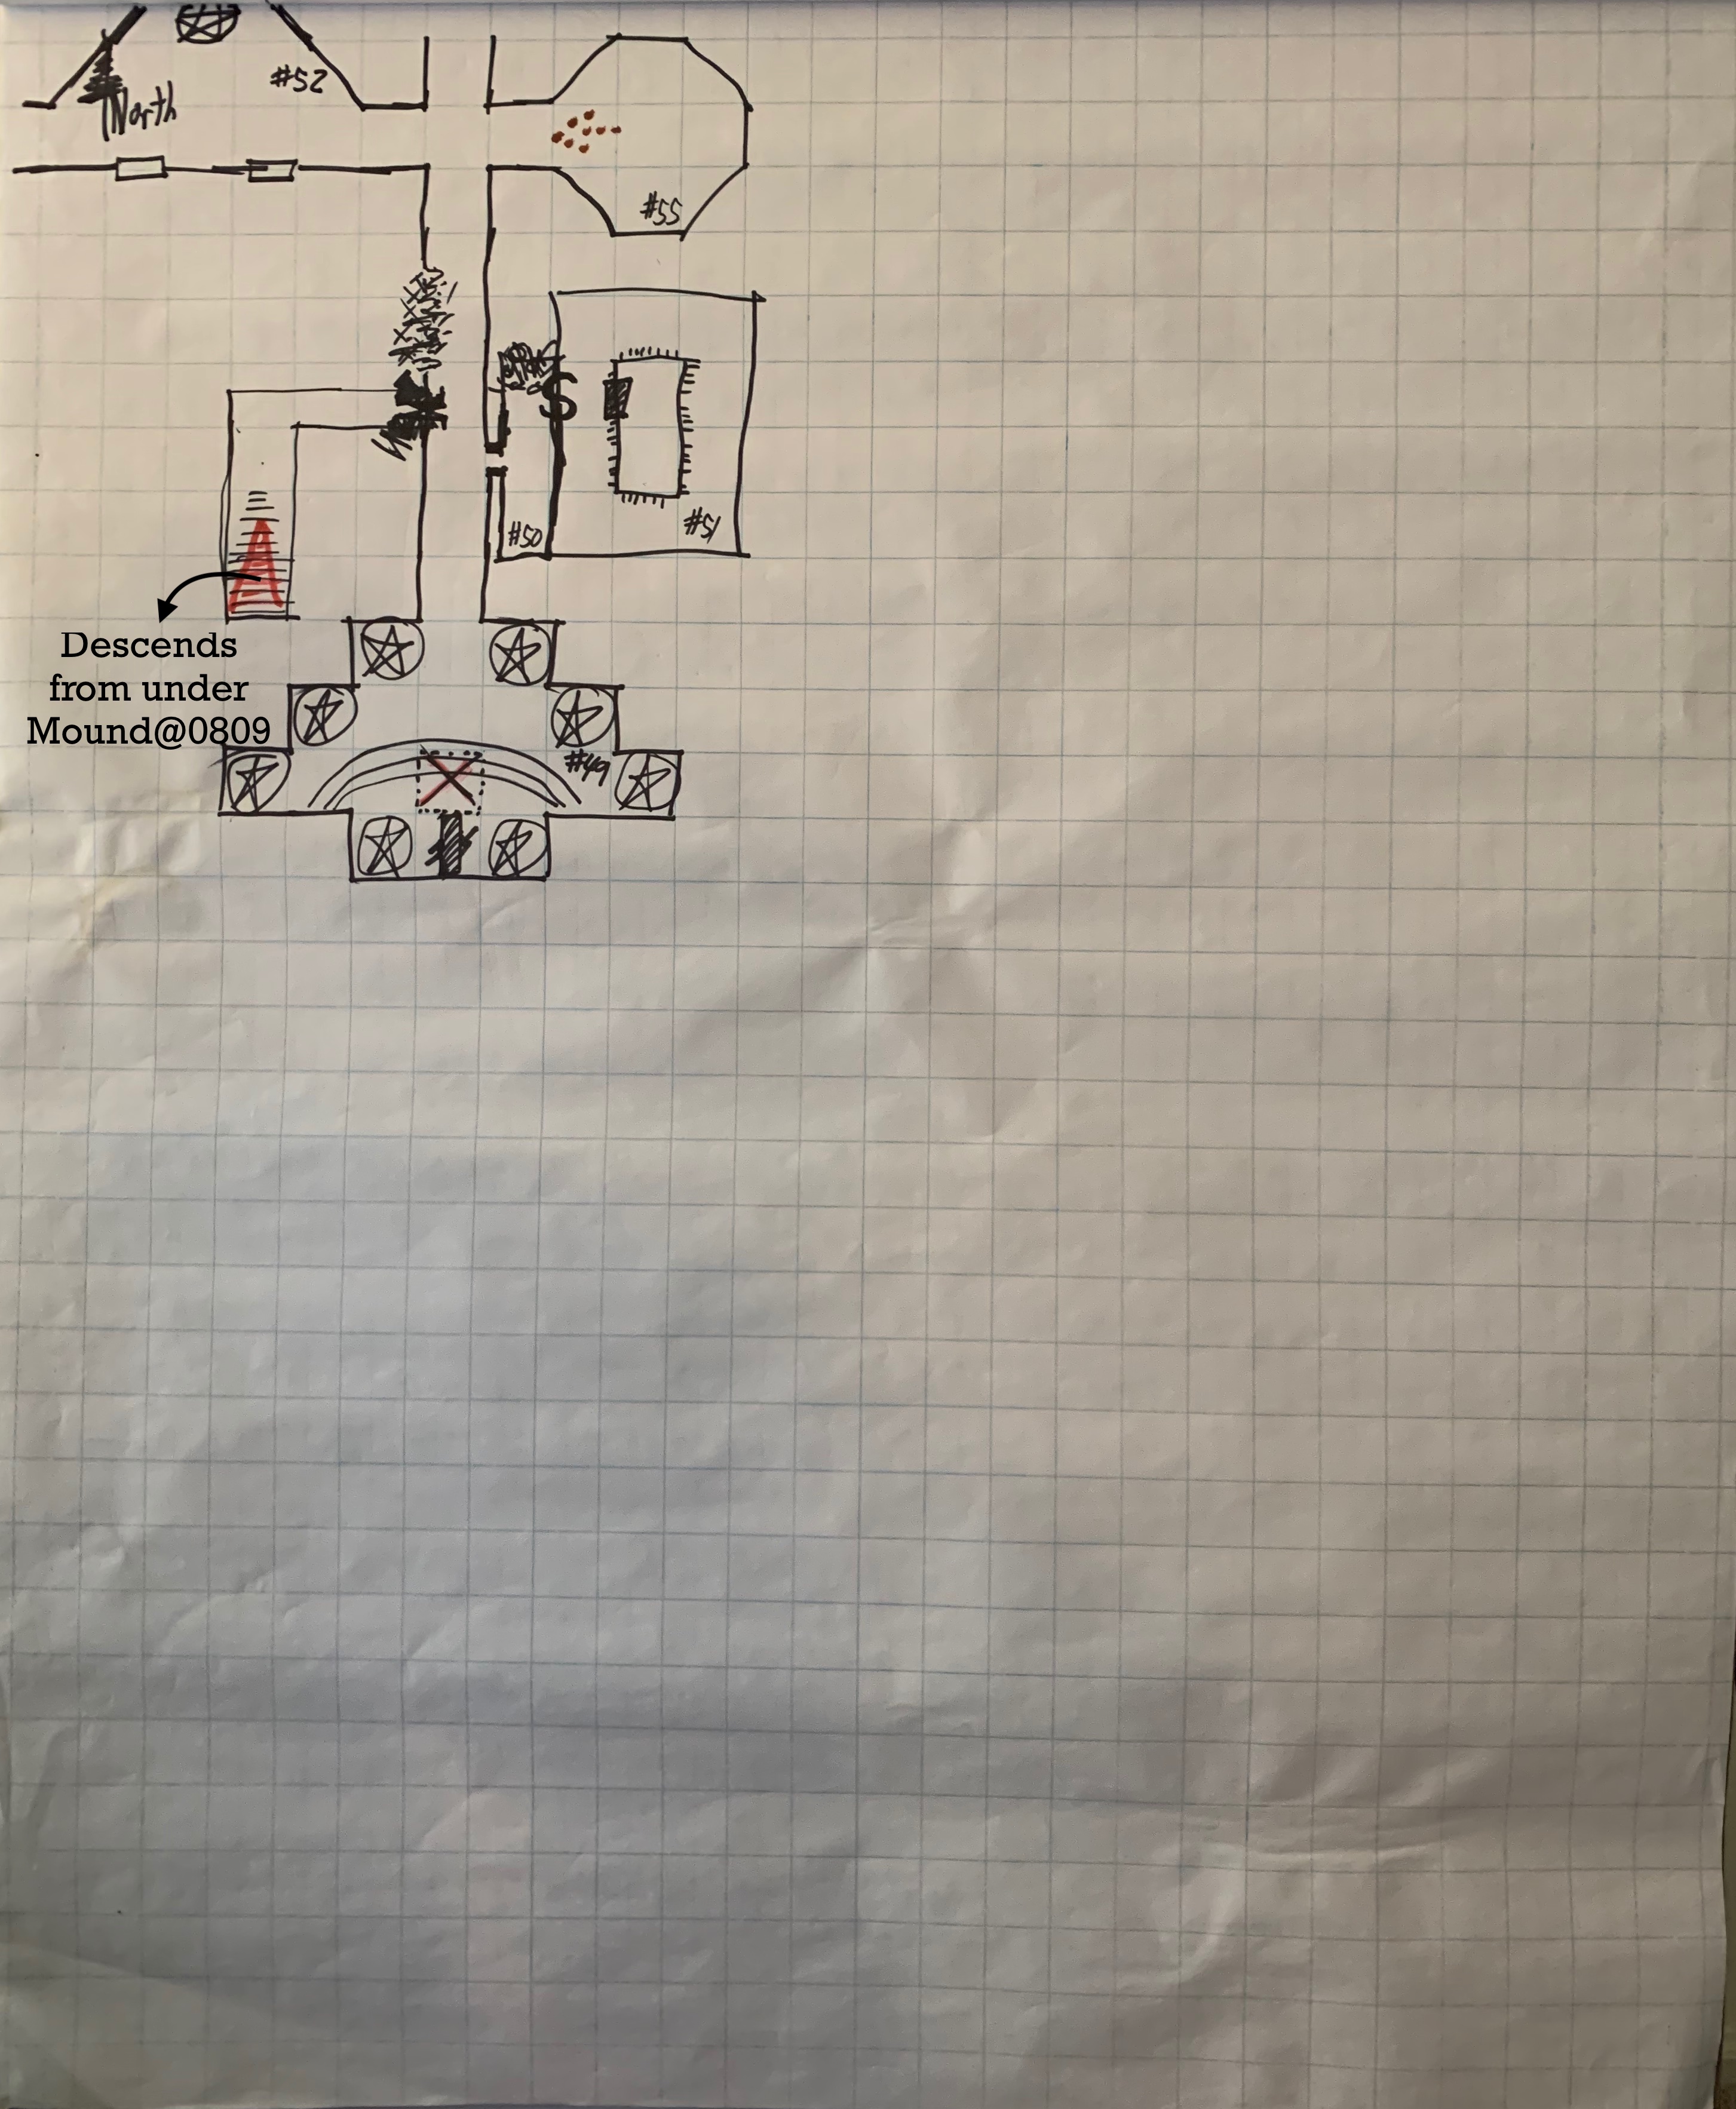 #52
North
#55
S
#50
#51
Descends
from under
Mound@0809
#49